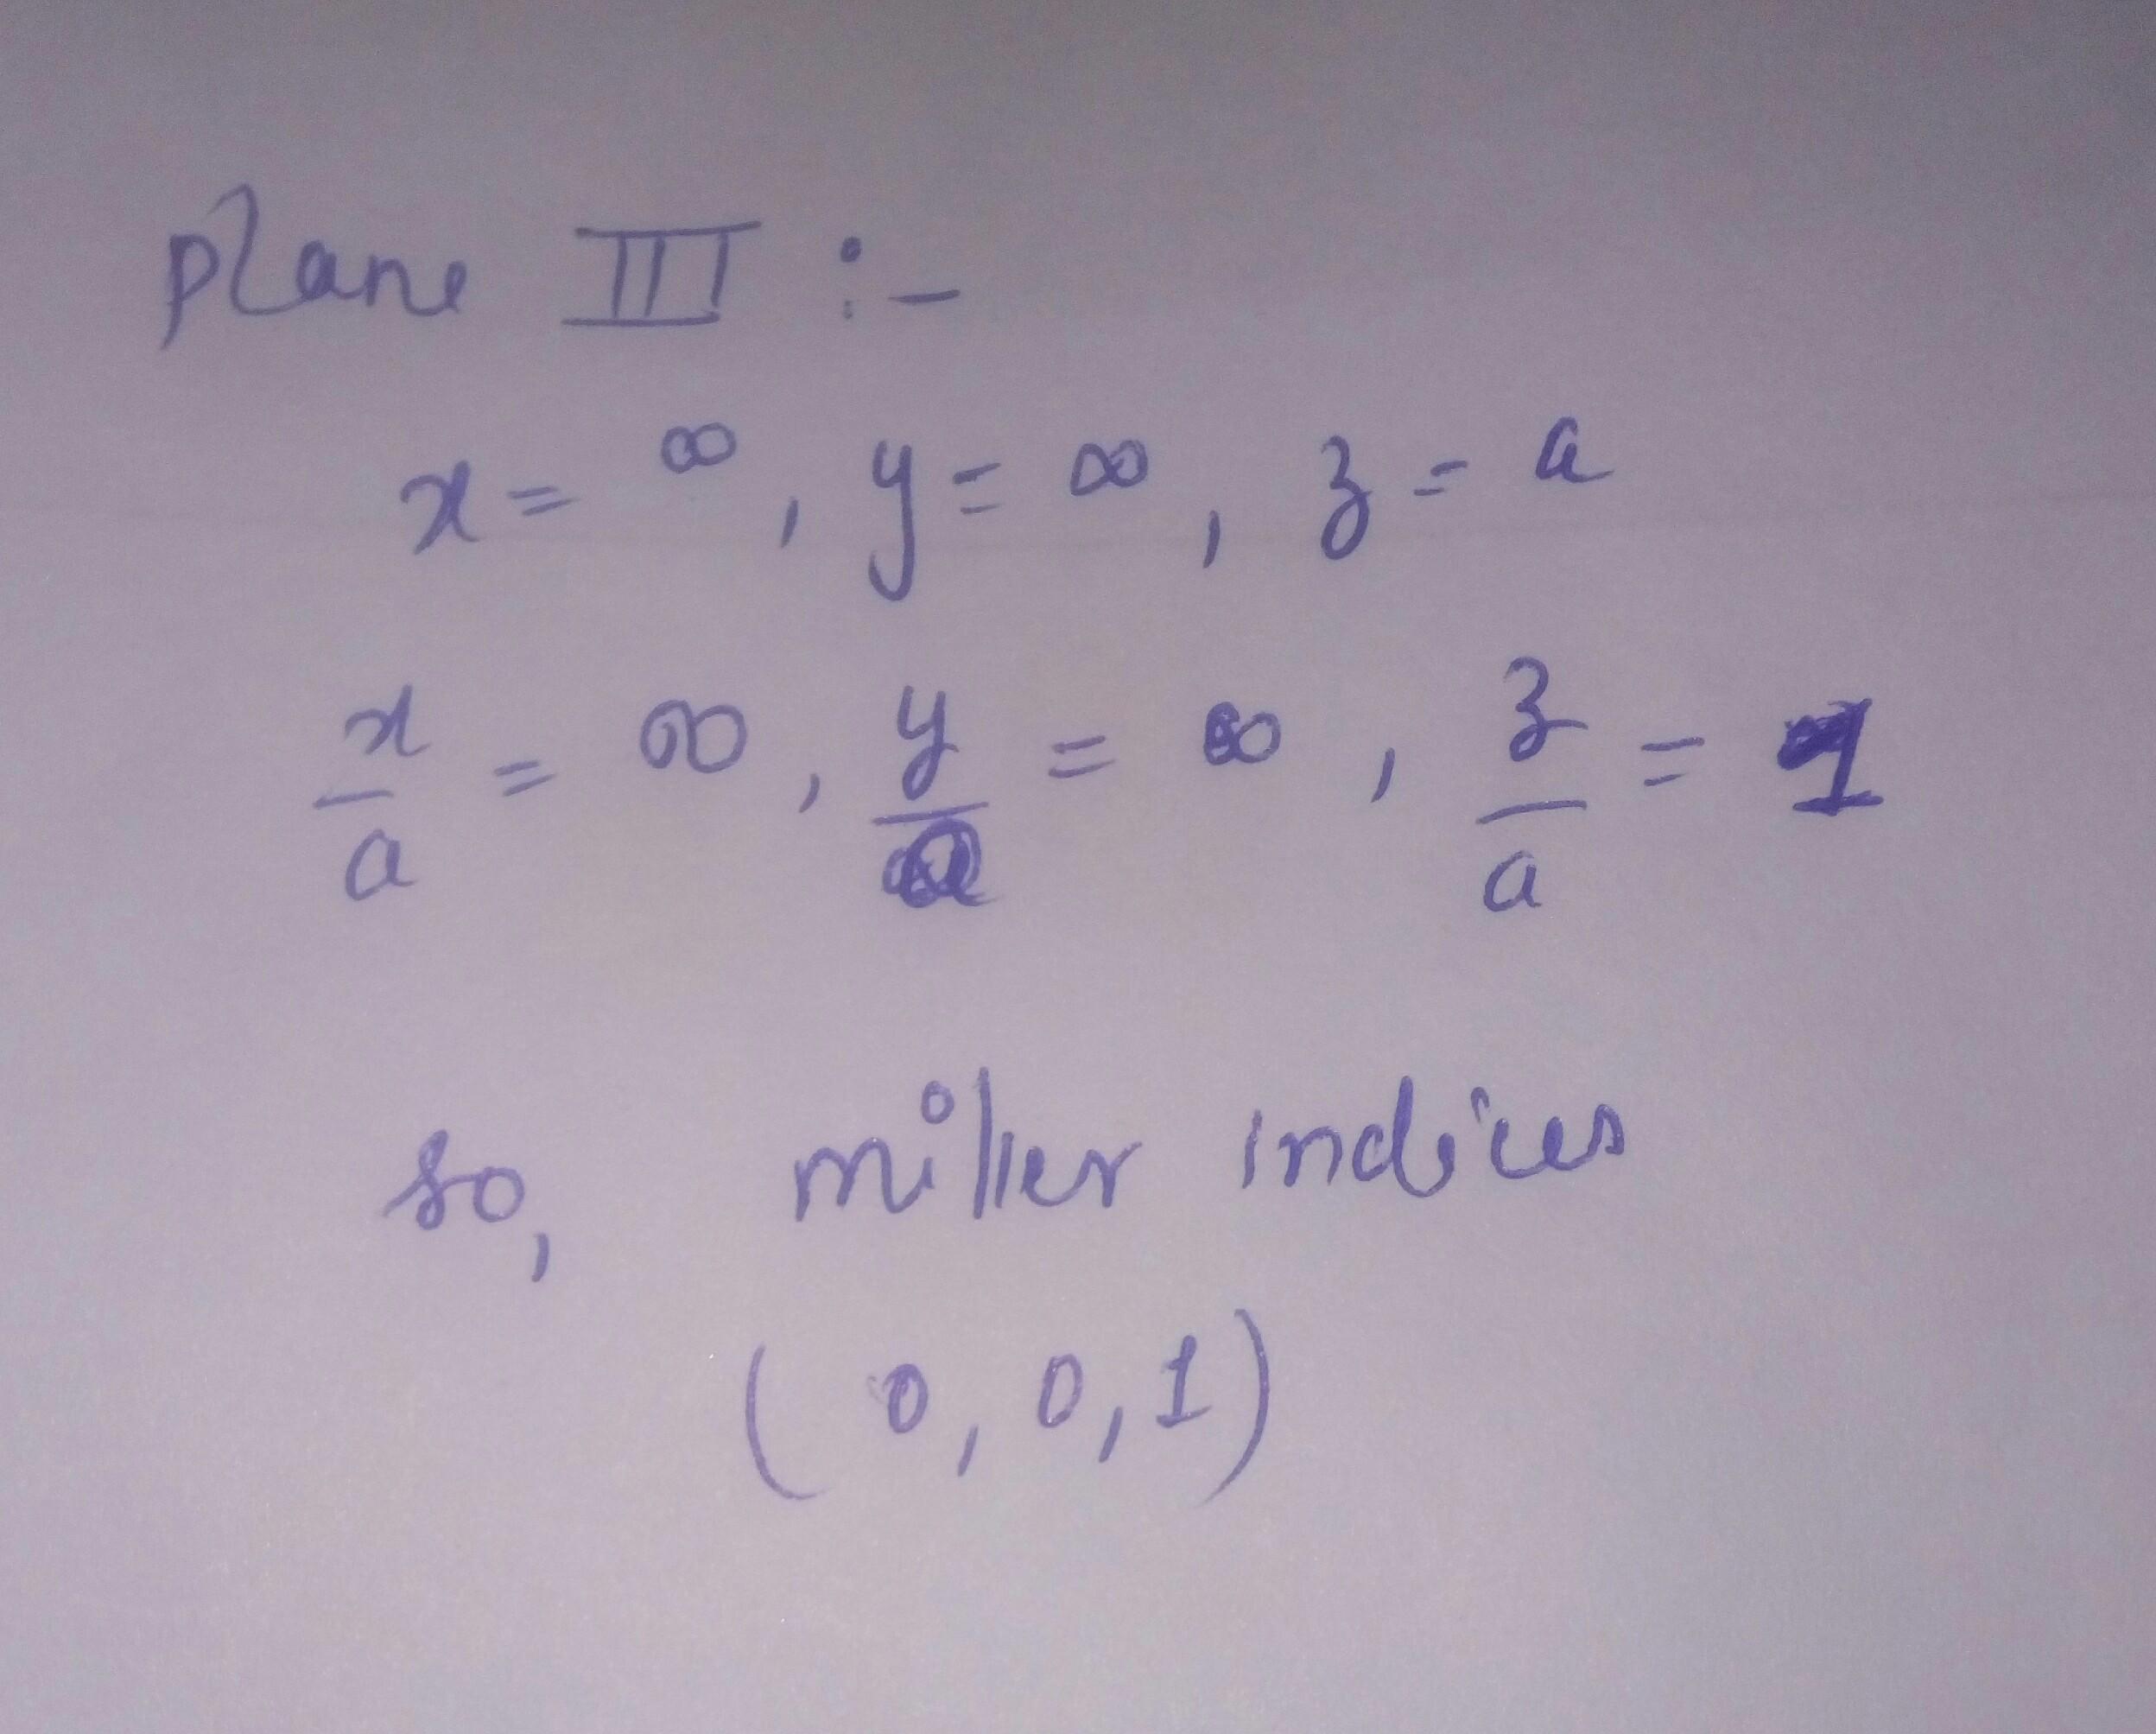 plane III :-
x = ∞, y = ∞, z = a
x/a = ∞, y/a = ∞, z/a = 1
so, miller indices
(0, 0, 1)